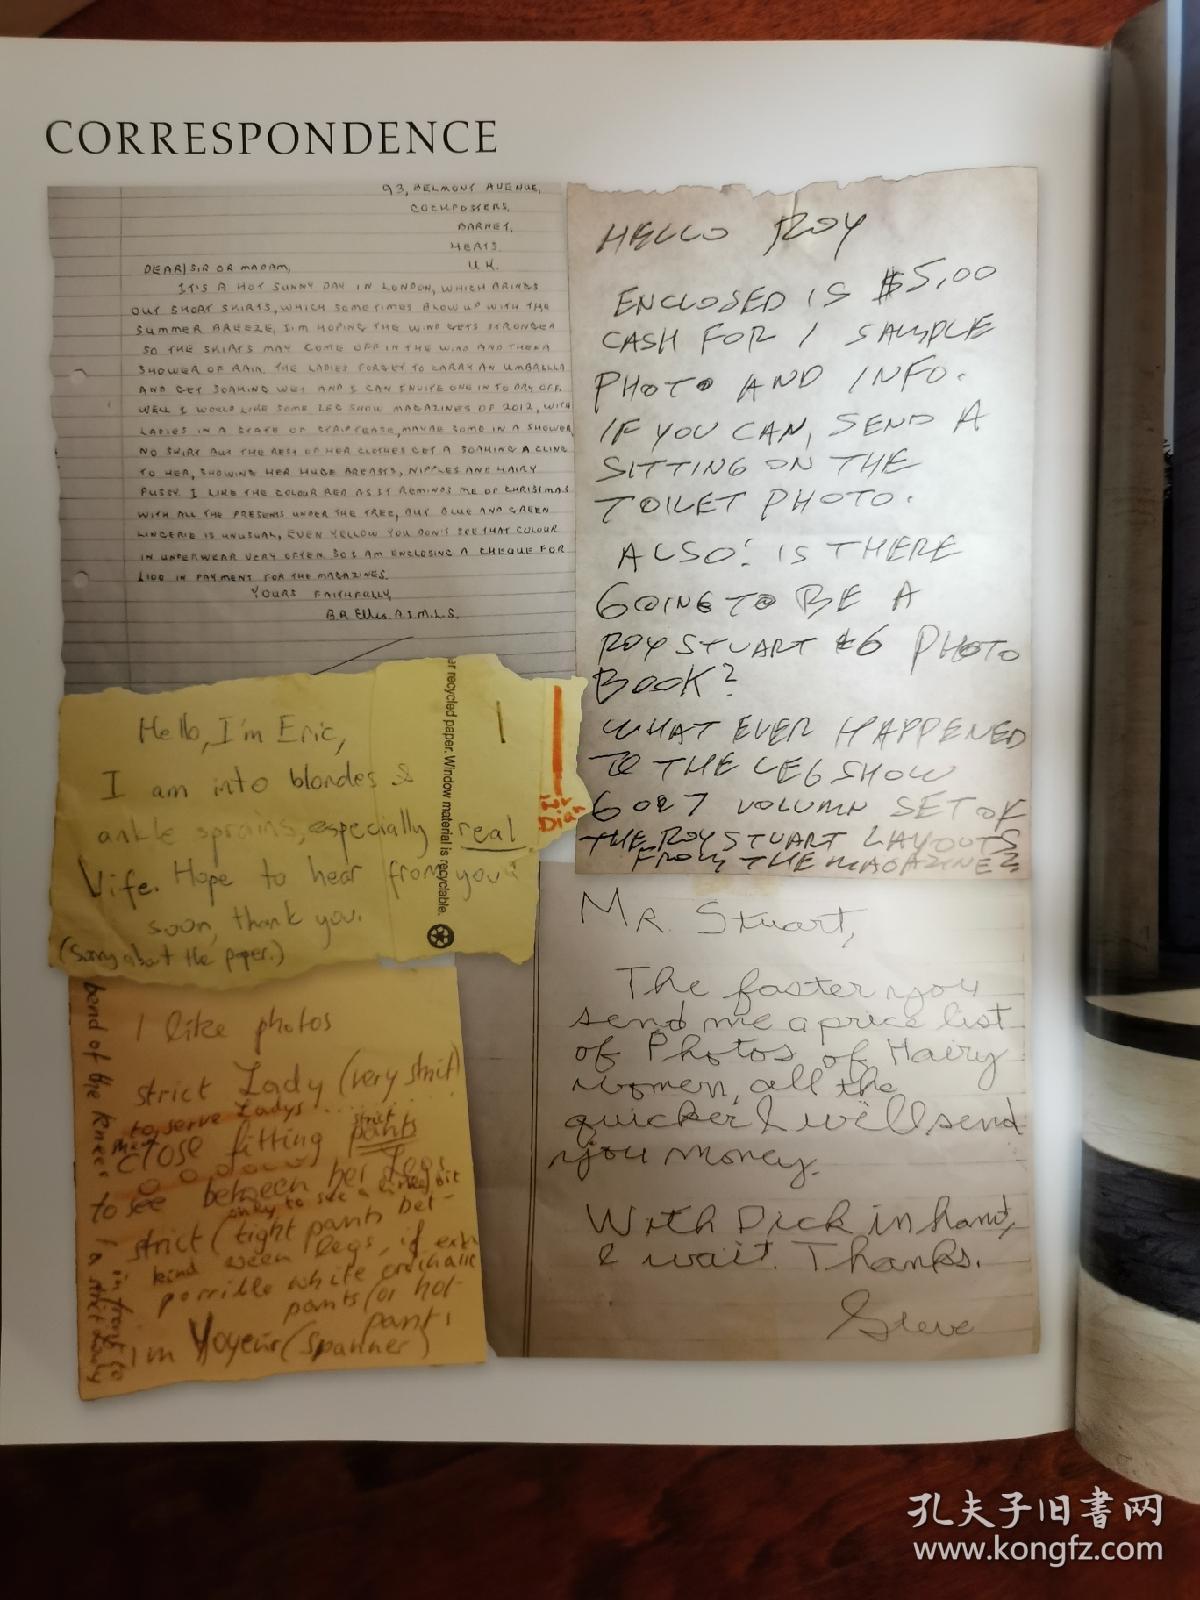 CORRESPONDENCE
93, BELMONT AVENUE,
COCKFOSTERS,
BARNET,
HERTS.
U.K.
DEAR SIR OR MADAM,
IT'S A HOT SUNNY DAY IN LONDON, WHICH BRINGS
OUT SHORT SKIRTS, WHICH SOMETIMES BLOW UP WITH THE
SUMMER BREEZE, I'M HOPING THE WIND GETS STRONGER
SO THE SKIRTS MAY COME OFF IN THE WIND AND THEN A
SHOWER OF RAIN. THE LADIES FORGET TO CARRY AN UMBRELLA
AND GET SOAKING WET AND I CAN INVITE ONE IN TO DRY OFF.
WELL I WOULD LIKE SOME LEG SHOW MAGAZINES OF 2012, WITH
LADIES IN A STATE OF STRIPTEASE, MAYBE SOME IN A SHOWER,
NO SKIRT BUT THE REST OF HER CLOTHES GET A SOAKING A CLING
TO HER, SHOWING HER HUGE BREASTS, NIPPLES AND HAIRY
PUSSY. I LIKE THE COLOUR RED AS IT REMINDS ME OF CHRISTMAS
WITH ALL THE PRESENTS UNDER THE TREE, BUT BLUE AND GREEN
LINGERIE IS UNUSUAL, EVEN YELLOW YOU DON'T SEE THAT COLOUR
IN UNDERWEAR VERY OFTEN. SO I AM ENCLOSING A CHEQUE FOR
£100 IN PAYMENT FOR THE MAGAZINES.
YOURS FAITHFULLY,
B.R. Ellis.
HELLO ROY
ENCLOSED IS $5.00
CASH FOR 1 SAMPLE
PHOTO AND INFO.
IF YOU CAN, SEND A
SITTING ON THE
TOILET PHOTO.
ALSO: IS THERE
GOING TO BE A
ROY STUART #6 PHOTO
BOOK?
WHAT EVER HAPPENED
TO THE LEG SHOW
6 OR 7 VOLUMN SET OF
THE ROY STUART LAYOUTS
FROM THE MAGAZINE?
Hello, I'm Eric,
I am into blondes &
ankle sprains, especially real
life. Hope to hear from you
soon, thank you.
(Sorry about the paper.)
er recycled paper. Window material is recyclable.
for
Dian
I like photos
strict Lady (very strict)
to serve Ladys
close fitting pants
strict
to see between her Legs
only to see a
strict (tight pants bet-
kind ween legs, if
porrible white
pants (or hot
pants
I'm Voyeur (spanner)
bend of the knees
in front to
a strict Lady
Mr. Stuart,
The faster you
send me a price list
of Photos of Hairy
women, all the
quicker I will send
you money.
With Dick in hand,
I wait. Thanks.
Steve
孔夫子旧书网
www.kongfz.com